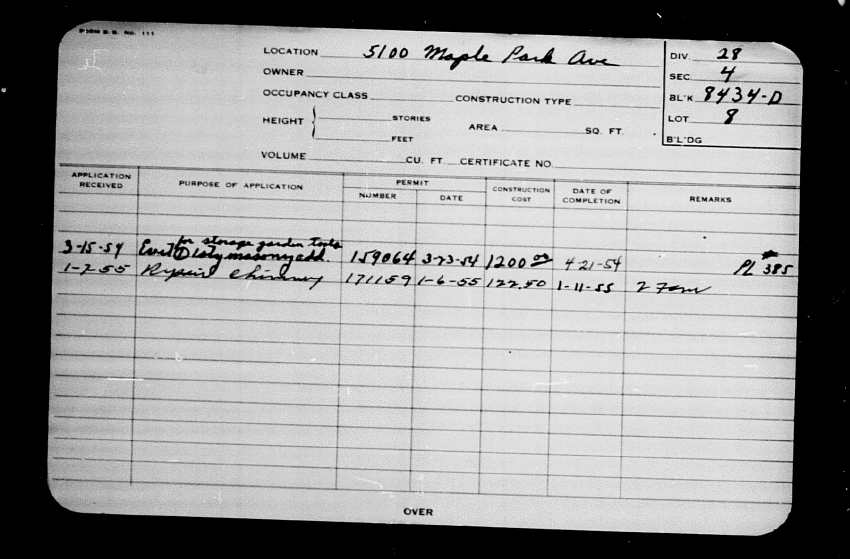 FORM B.B. No. 111
LOCATION 5100 Maple Park Ave
OWNER
OCCUPANCY CLASS CONSTRUCTION TYPE
HEIGHT { STORIES
FEET
AREA SQ. FT.
VOLUME CU. FT. CERTIFICATE NO.
DIV. 28
SEC. 4
BL'K 8434-D
LOT 8
B'L'DG
APPLICATION RECEIVED PURPOSE OF APPLICATION PERMIT NUMBER DATE CONSTRUCTION COST DATE OF COMPLETION REMARKS
for storage garden tools
3-15-54 1 sty masonry add. 159064 3-23-54 1200 00 4-21-54 PL 385
1-7-55 Repair Chimney 171159 1-6-55 122.50 1-11-55 2 Fam
OVER